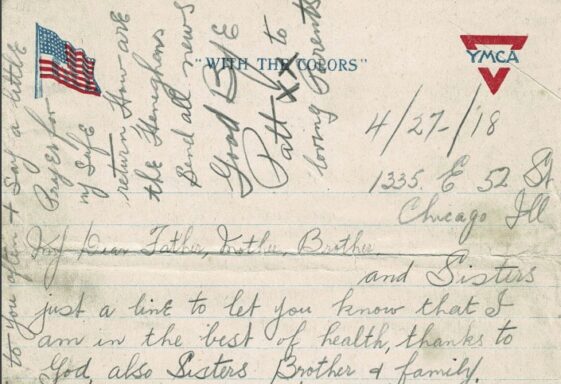 "WITH THE COLORS"
YMCA
4/27-/18
1335. E 52 St
Chicago Ill
My Dear Father, Mother, Brother
and Sisters
just a line to let you know that I
am in the best of health, thanks to
God, also Sisters Brother & family.
to you often & Say a little
Prayer for
my Safe
return How are
the Heneghans
Send all news
Good Bye
Patt XX to
loving Parents